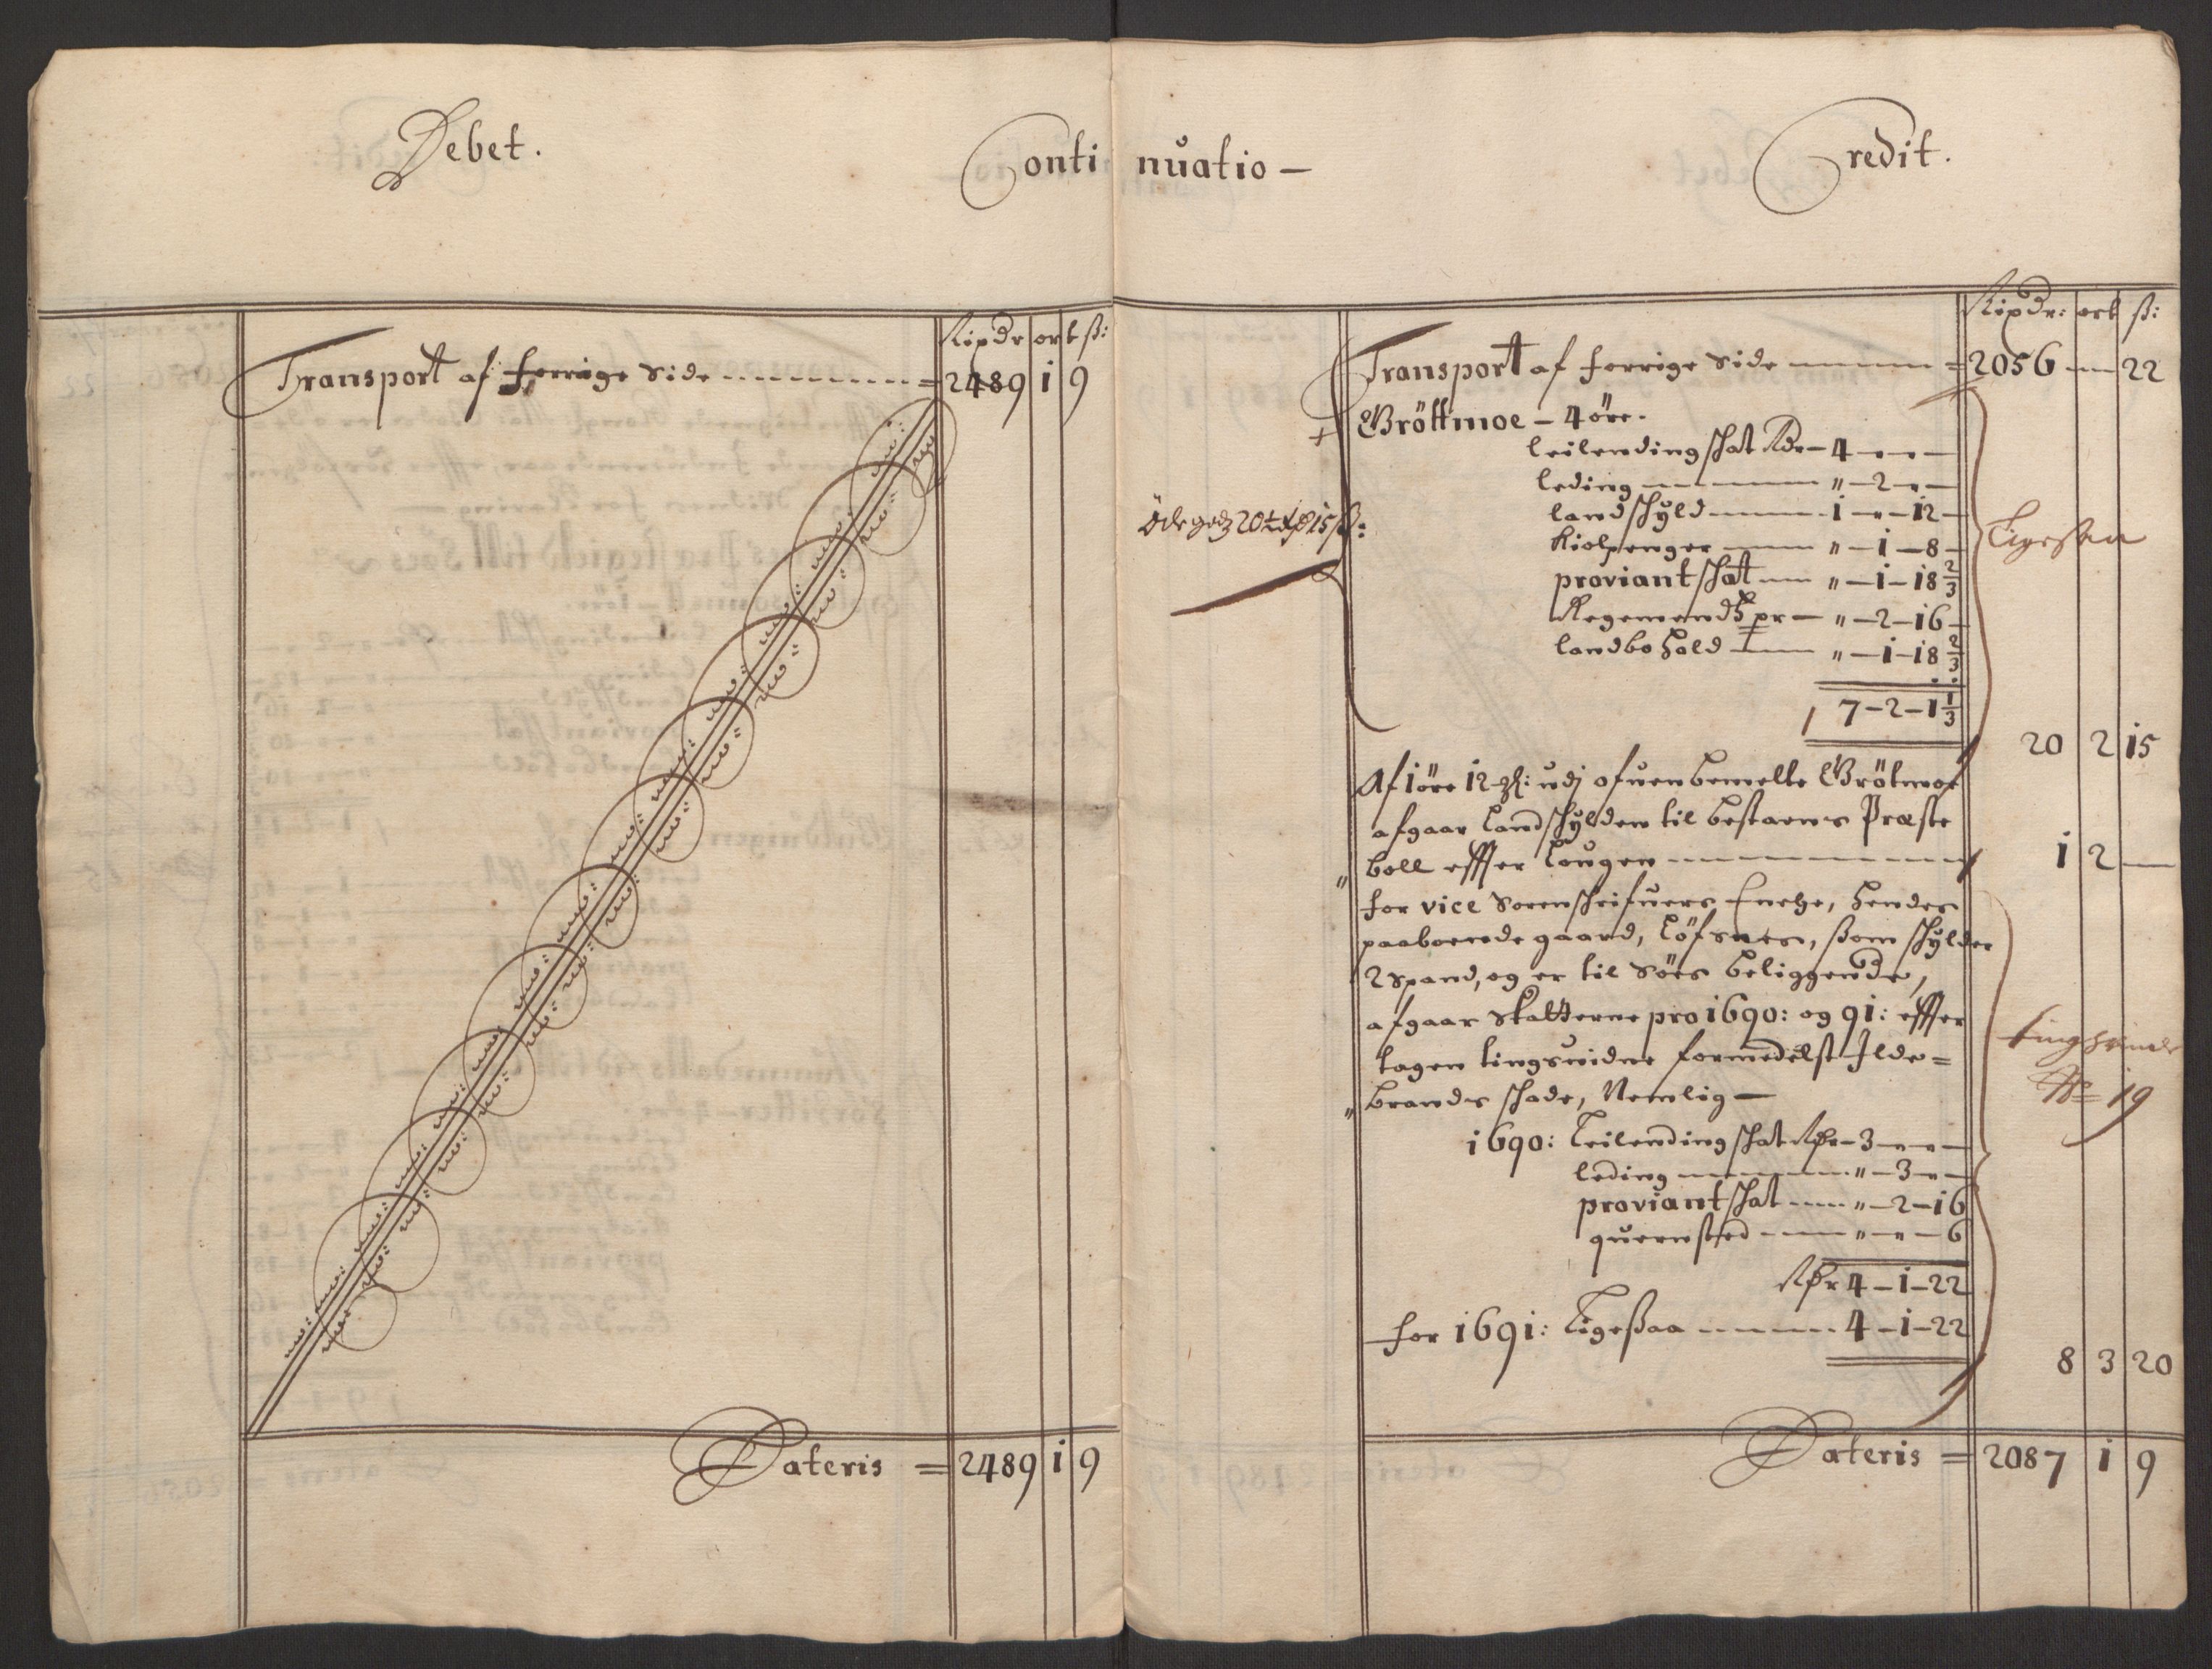 Debet.
Continuatio –
Credit.
Rixdr ort ß:
Transport af forrige Side = 2489 1 9
Lateris = 2489 1 9
Rixdr: ort ß:
Transport af forrige Side = 2056 – 22
Gröttmoe – 4 öre.
leilendingschat Rdr – 4 – " – " –
leding – " – 2 – " –
landschyld – 1 – " – 12 –
Öde godz 20 2 15 ß:
Ligesaa
Kiolpenger – " – 1 – 8 –
proviantschat – " – 1 – 18 2/3
Regemendtz pr – " – 2 – 16 –
landbohold – " – 1 – 18 2/3
7 – 2 – 1 1/3
20 2 15
Af 1 öre 12 ℔: udj ofuenbemelte Grötmoe
afgaar Landschylden til bestaens Præste
boll effter Lougen 1 2 –
" for vice Sorenschrifuers Encke, hendes
paaboende gaard, Löfsnes, ßom schylder
2 Spand, og er til Söes beliggende,
afgaar Skatterne pro 1690: og 91: effter
tagen tingsvidne formedelst Ilde=
" brands schade, Nemlig –
N 19
1690: Leilendingschat Rdr – 3 – " – " –
leding – " – 3 – " –
proviantschat – " – 2 – 16
quernsted – " – " – 6
Rdr 4 – 1 – 22
for 1691: Ligeßaa 4 – 1 – 22
8 3 20
Lateris = 2087 1 9